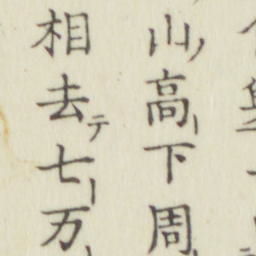 山ノ高下周
相去テ七万